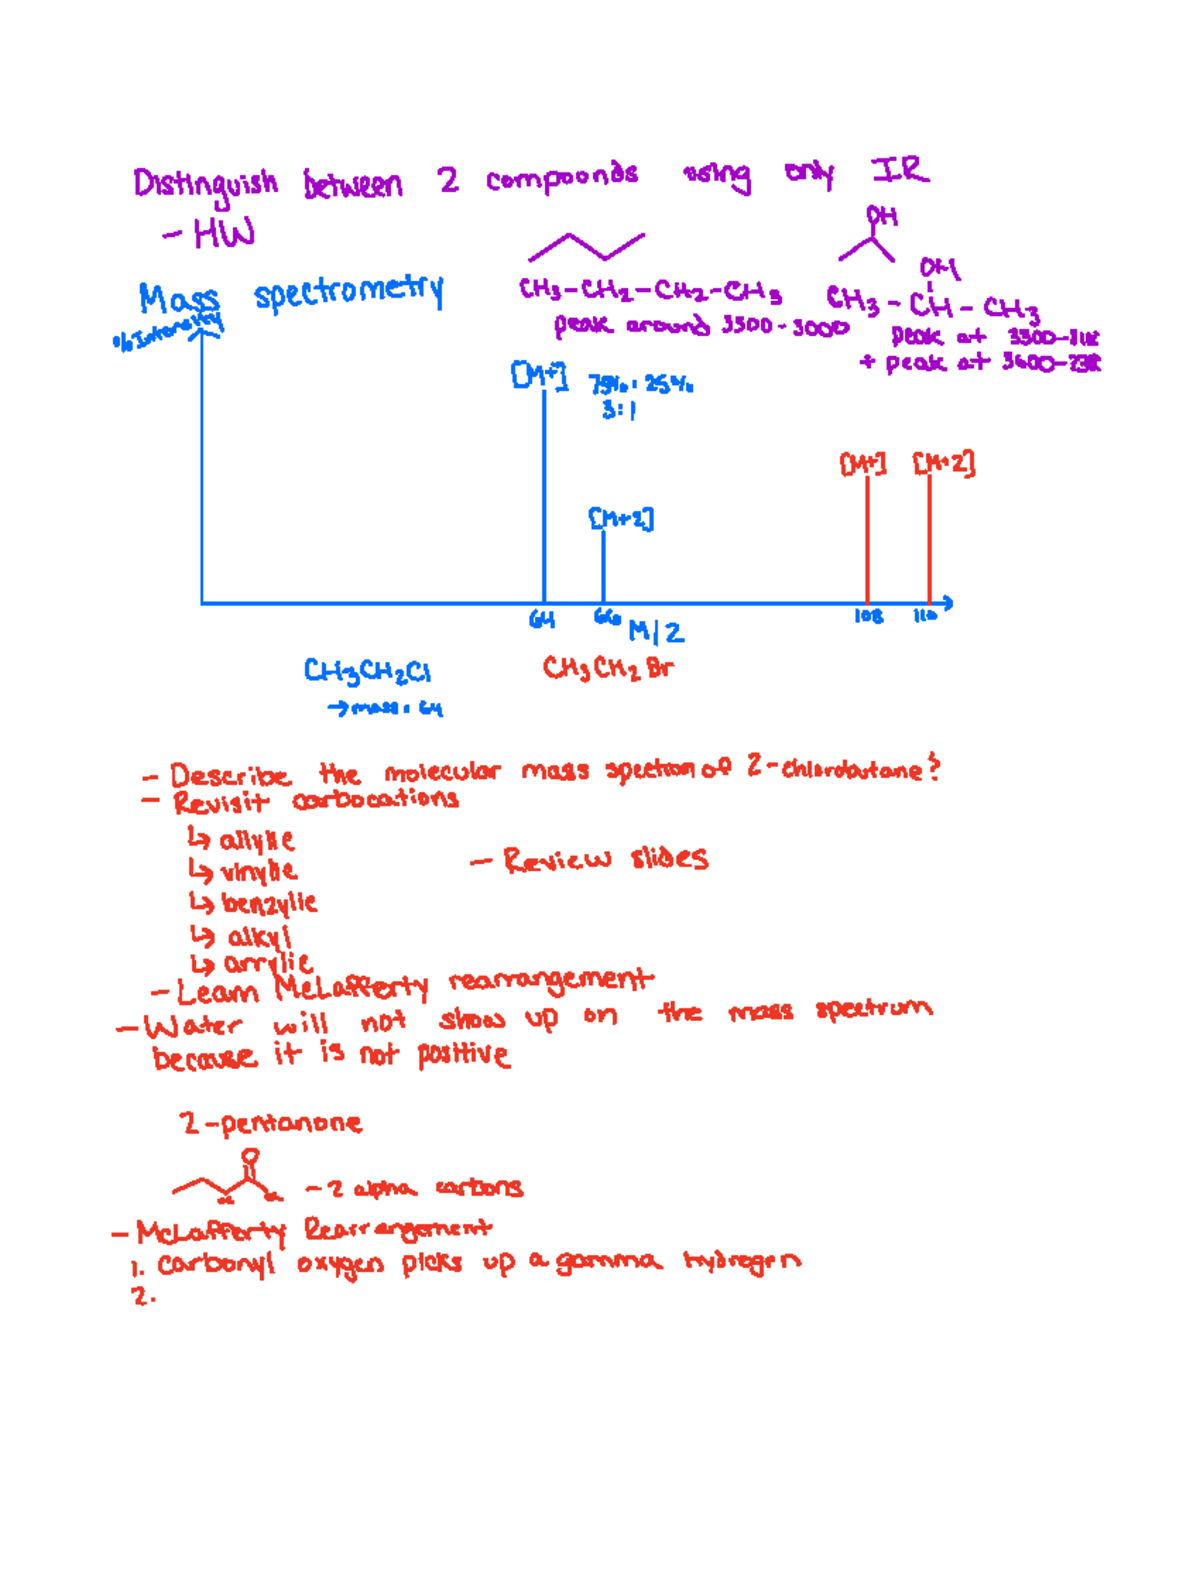 Distinguish between 2 compounds using only IR
- HW
OH
CH3-CH2-CH2-CH3
OH
CH3 - CH - CH3
peak around 3300-3000
peak at
+ peak at
Mass spectrometry
% Intensity
[M+] 75% : 25%
3:1
[M+2]
[M+] [M+2]
64 66 108 110
M/2
CH3CH2Cl CH3CH2Br
→ mass: 64
- Describe the molecular mass spectrum of 2-chlorobutane?
- Revisit carbocations
↳ allylic
↳ vinylic
↳ benzylic
↳ alkyl
↳ arrylic
- Review slides
- Learn McLafferty rearrangement
- Water will not show up on the mass spectrum
because it is not positive
2-pentanone
O
α α - 2 alpha carbons
- McLafferty Rearrangement
1. Carbonyl oxygen picks up a gamma hydrogen
2.